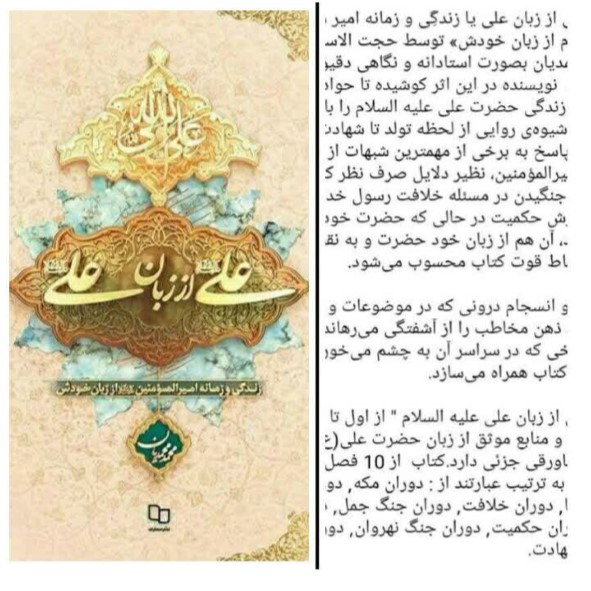 علی از زبان علی
زندگی و زمانه امیرالمؤمنین از زبان خودش
محمد محمدیان
از زبان علی یا زندگی و زمانه امیر
م از زبان خودش» توسط حجت الاس
مدیان بصورت استادانه و نگاهی دقیق
نویسنده در این اثر کوشیده تا حواد
زندگی حضرت علی علیه السلام را با
شیوه‌ی روایی از لحظه تولد تا شهادت
پاسخ به برخی از مهمترین شبهات از
یرالمؤمنین، نظیر دلایل صرف نظر ک
جنگیدن در مسئله خلافت رسول خد
ش حکمیت در حالی که حضرت خود
.، آن هم از زبان خود حضرت و به نقل
اط قوت کتاب محسوب می‌شود.
و انسجام درونی که در موضوعات و
ذهن مخاطب را از آشفتگی می‌رهاند
خی که در سراسر آن به چشم می‌خور
کتاب همراه می‌سازد.
از زبان علی علیه السلام " از اول تا
و منابع موثق از زبان حضرت علی(ع
اورقی جزئی دارد.کتاب از 10 فصل
به ترتیب عبارتند از : دوران مکه, دو
ا, دوران خلافت, دوران جنگ جمل,
ران حکمیت, دوران جنگ نهروان, دور
هادت.